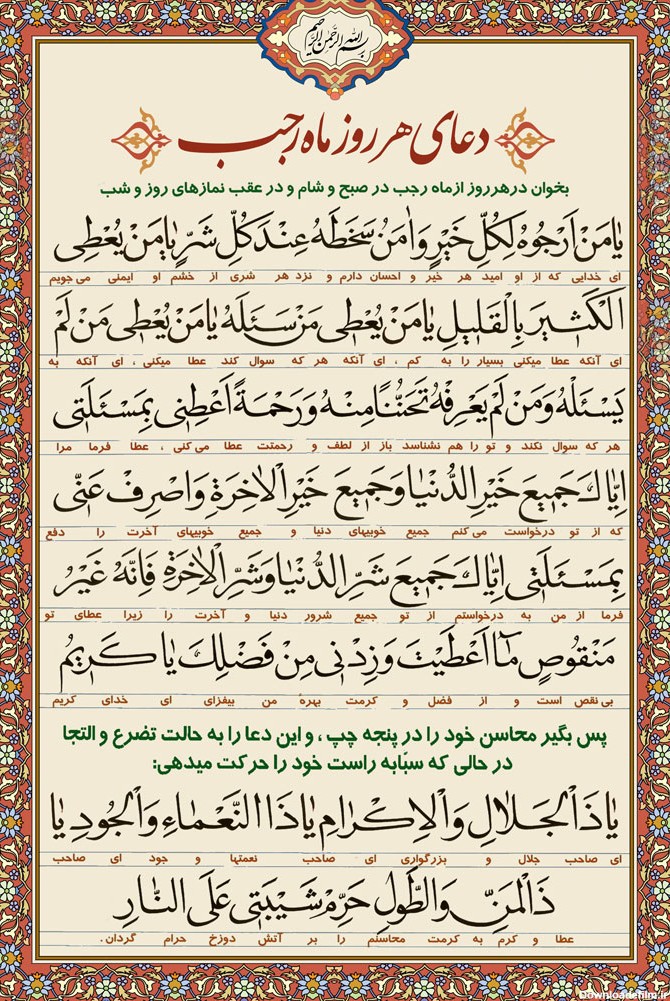 بسم الله الرحمن الرحیم
دعای هر روز ماه رجب
بخوان در هر روز از ماه رجب در صبح و شام و در عقب نمازهای روز و شب
یٰا مَنْ اَرْجُوهُ لِکُلِّ خَیْرٍ وَ اٰمَنُ سَخَطَهُ عِنْدَ کُلِّ شَرٍّ یٰا مَنْ یُعْطِی
ای خدایی که از او امید هر خیر و احسان دارم و نزد هر شری از خشم او ایمنی می‌جویم
الْکَثیرَ بِالْقَلیلِ یٰا مَنْ یُعْطی مَنْ سَئَلَهُ یٰا مَنْ یُعْطی مَنْ لَمْ
ای آنکه عطا میکنی بسیار را به کم ، ای آنکه هر که سوال کند عطا میکنی ، ای آنکه به
یَسْئَلْهُ وَ مَنْ لَمْ یَعْرِفْهُ تَحَنُّنًا مِنْهُ وَ رَحْمَةً اَعْطِنی بِمَسْئَلَتی
هر که سوال نکند و تو را هم نشناسد باز از لطف و رحمتت عطا می‌کنی ، عطا فرما مرا
اِیّٰاکَ جَمیعَ خَیْرِ الدُّنْیٰا وَ جَمیعَ خَیْرِ الْاٰخِرَةِ وَ اصْرِفْ عَنّی
که از تو درخواست می‌کنم جمیع خوبیهای دنیا و جمیع خوبیهای آخرت را دفع
بِمَسْئَلَتی اِیّٰاکَ جَمیعَ شَرِّ الدُّنْیٰا وَ شَرِّ الْاٰخِرَةِ فَاِنَّهُ غَیْرُ
فرما از من به درخواستم از تو جمیع شرور دنیا و آخرت را زیرا عطای تو
مَنْقُوصٍ مٰا اَعْطَیْتَ وَ زِدْنی مِنْ فَضْلِکَ یٰا کَریمُ
بی نقص است و از فضل و کرمت بهرهٔ من بیفزای ای خدای کریم
پس بگیر محاسن خود را در پنجه چپ ، و این دعا را به حالت تضرع و التجا
در حالی که سبّابه راست خود را حرکت میدهی:
یٰا ذَا الْجَلٰالِ وَ الْاِکْرٰامِ یٰا ذَا النَّعْمٰاءِ وَ الْجُودِ یٰا
ای صاحب جلال و بزرگواری ای صاحب نعمتها و جود ای صاحب
ذَا الْمَنِّ وَ الطَّوْلِ حَرِّمْ شَیْبَتی عَلَی النّٰارِ
عطا و کرم به کرمت محاسنم را بر آتش دوزخ حرام گردان.